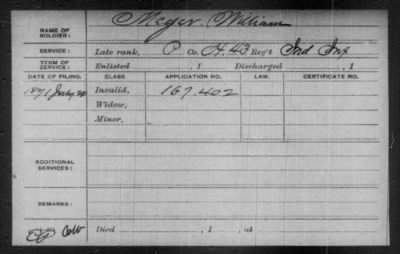 NAME OF SOLDIER: Meyer, William
SERVICE: Late rank, P Co. H. 43 Reg't Ind Inf
TERM OF SERVICE: Enlisted , 1 Discharged , 1
DATE OF FILING. CLASS APPLICATION NO. LAW. CERTIFICATE NO.
1871 July Invalid, 167.402
Widow,
Minor,
ADDITIONAL SERVICES:
REMARKS:
Died , 1 , at